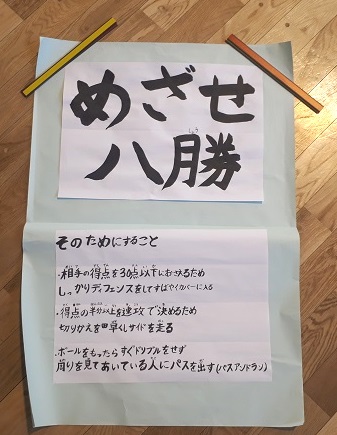 めざせ
八勝
そのためにすること
・相手の得点を30点以下におさえるため
しっかりディフェンスをしてすばやくカバーに入る
・得点の半分以上を速攻で決めるため
切りかえを早くしサイドを走る
・ボールをもったらすぐドリブルをせず
周りを見てあいている人にパスを出す(パスアンドラン)